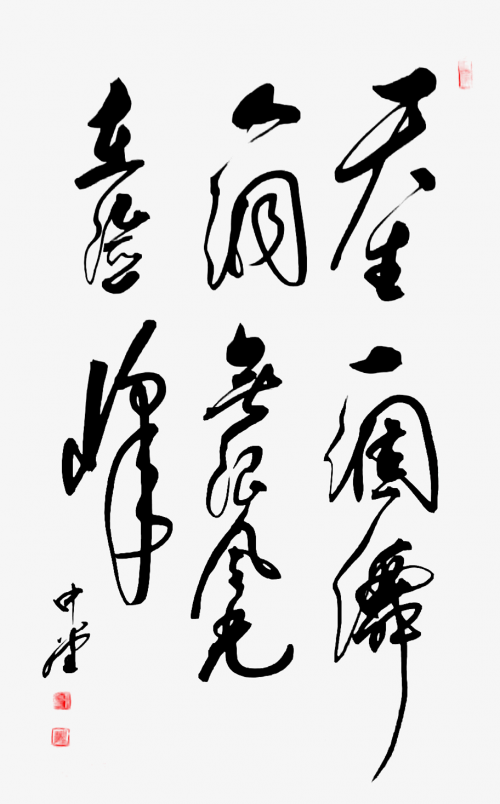 天生一個僊
人洞無限風光
在險峰